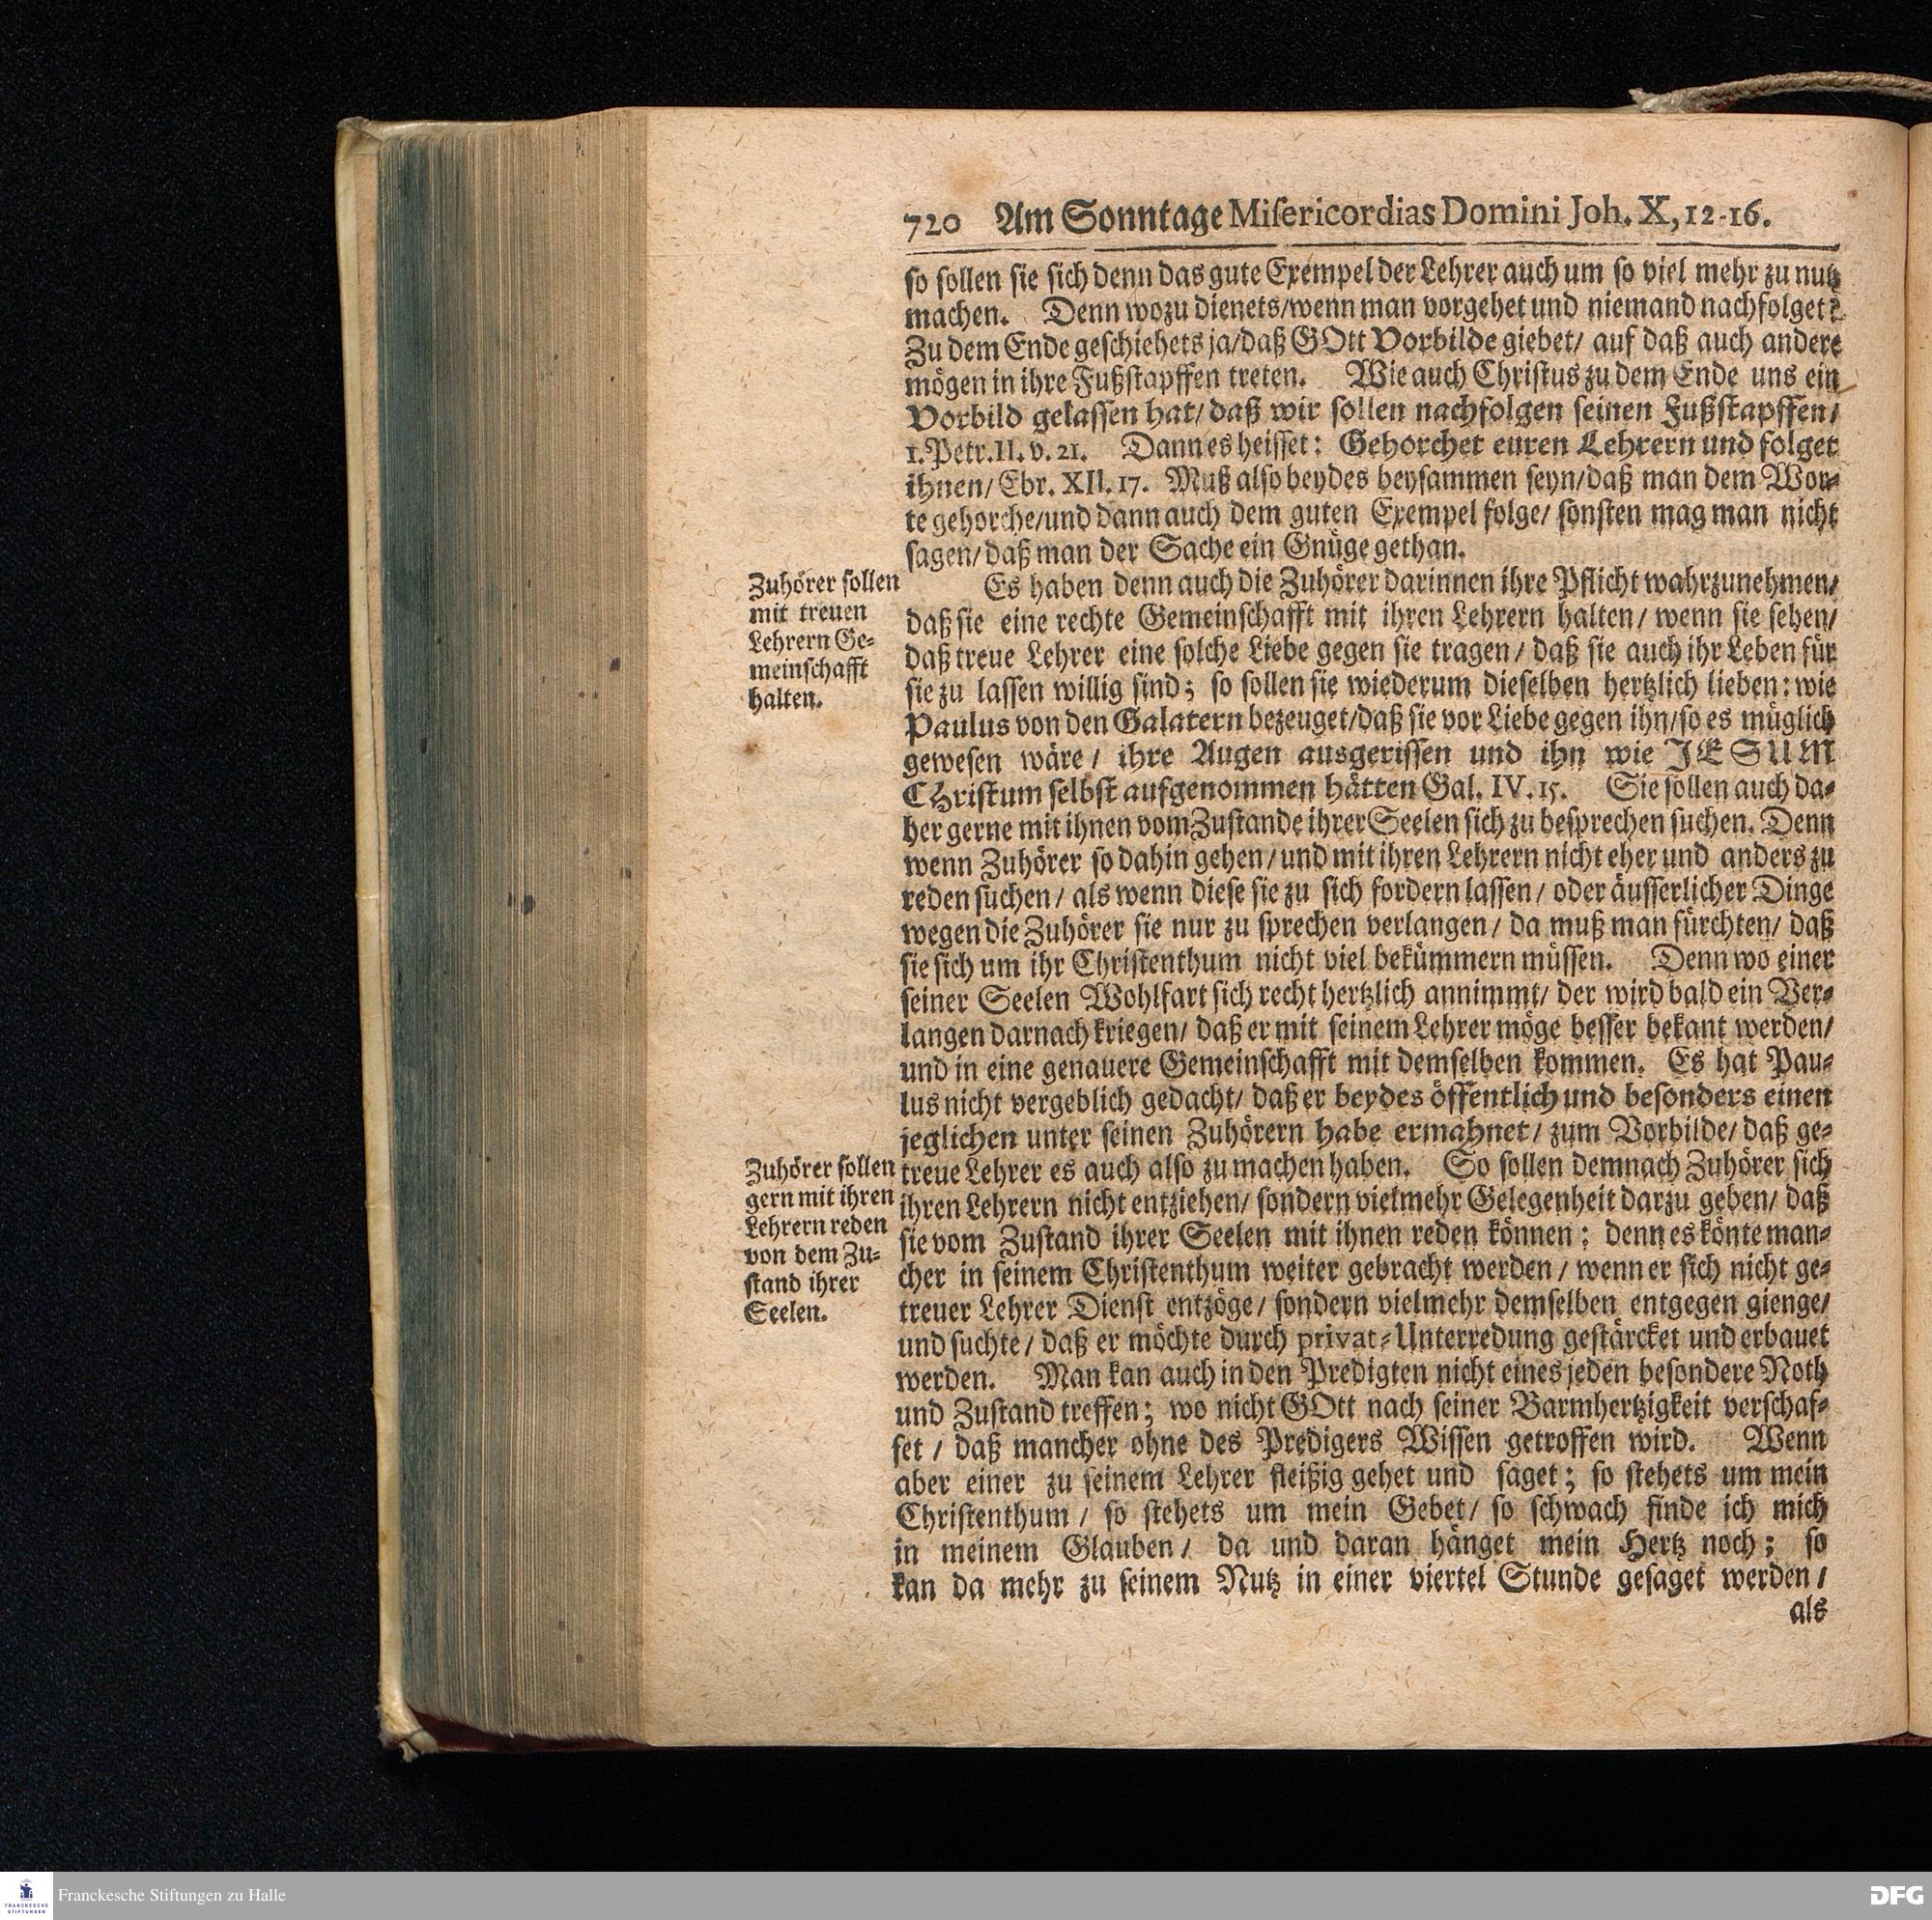 720 Am Sonntage Misericordias Domini Joh. X, 12-16.
so sollen sie sich denn das gute Exempel der Lehrer auch um so viel mehr zu nutz
machen. Denn wozu dienets/wenn man vorgehet und niemand nachfolget?
Zu dem Ende geschiehets ja/daß GOtt Vorbilde giebet/ auf daß auch andere
mögen in ihre Fußstapffen treten. Wie auch Christus zu dem Ende uns ein
Vorbild gelassen hat/ daß wir sollen nachfolgen seinen Fußstapffen/
1. Petr. II. v. 21. Dann es heisset: Gehorchet euren Lehrern und folget
ihnen/ Ebr. XII. 17. Muß also beydes beysammen seyn/daß man dem Wor-
te gehorche/und dann auch dem guten Exempel folge/ sonsten mag man nicht
sagen/ daß man der Sache ein Gnüge gethan.
Zuhörer sollen
mit treuen
Lehrern Ge-
meinschafft
halten.
Es haben denn auch die Zuhörer darinnen ihre Pflicht wahrzunehmen/
daß sie eine rechte Gemeinschafft mit ihren Lehrern halten/ wenn sie sehen/
daß treue Lehrer eine solche Liebe gegen sie tragen/ daß sie auch ihr Leben für
sie zu lassen willig sind; so sollen sie wiederum dieselben hertzlich lieben: wie
Paulus von den Galatern bezeuget/daß sie vor Liebe gegen ihn/so es müglich
gewesen wäre/ ihre Augen ausgerissen und ihn wie JESUM
CHristum selbst aufgenommen hätten Gal. IV. 15. Sie sollen auch da-
her gerne mit ihnen vom Zustande ihrer Seelen sich zu besprechen suchen. Denn
wenn Zuhörer so dahin gehen/ und mit ihren Lehrern nicht eher und anders zu
reden suchen/ als wenn diese sie zu sich fordern lassen/ oder äusserlicher Dinge
wegen die Zuhörer sie nur zu sprechen verlangen/ da muß man fürchten/ daß
sie sich um ihr Christenthum nicht viel bekümmern müssen. Denn wo einer
seiner Seelen Wohlfart sich recht hertzlich annimmt/ der wird bald ein Ver-
langen darnach kriegen/ daß er mit seinem Lehrer möge besser bekant werden/
und in eine genauere Gemeinschafft mit demselben kommen. Es hat Pau-
lus nicht vergeblich gedacht/ daß er beydes öffentlich und besonders einen
jeglichen unter seinen Zuhörern habe ermahnet/ zum Vorbilde/ daß ge-
Zuhörer sollen
gern mit ihren
Lehrern reden
von dem Zu-
stand ihrer
Seelen.
treue Lehrer es auch also zu machen haben. So sollen demnach Zuhörer sich
ihren Lehrern nicht entziehen/ sondern vielmehr Gelegenheit darzu geben/ daß
sie vom Zustand ihrer Seelen mit ihnen reden können; denn es könte man-
cher in seinem Christenthum weiter gebracht werden/ wenn er sich nicht ge-
treuer Lehrer Dienst entzöge/ sondern vielmehr demselben entgegen gienge/
und suchte/ daß er möchte durch privat-Unterredung gestärcket und erbauet
werden. Man kan auch in den Predigten nicht eines jeden besondere Noth
und Zustand treffen; wo nicht GOtt nach seiner Barmhertzigkeit verschaf-
fet/ daß mancher ohne des Predigers Wissen getroffen wird. Wenn
aber einer zu seinem Lehrer fleißig gehet und saget; so stehets um mein
Christenthum/ so stehets um mein Gebet/ so schwach finde ich mich
in meinem Glauben/ da und daran hänget mein Hertz noch; so
kan da mehr zu seinem Nutz in einer viertel Stunde gesaget werden/
als
FRANCKESCHE
STIFTUNGEN
Franckesche Stiftungen zu Halle
DFG